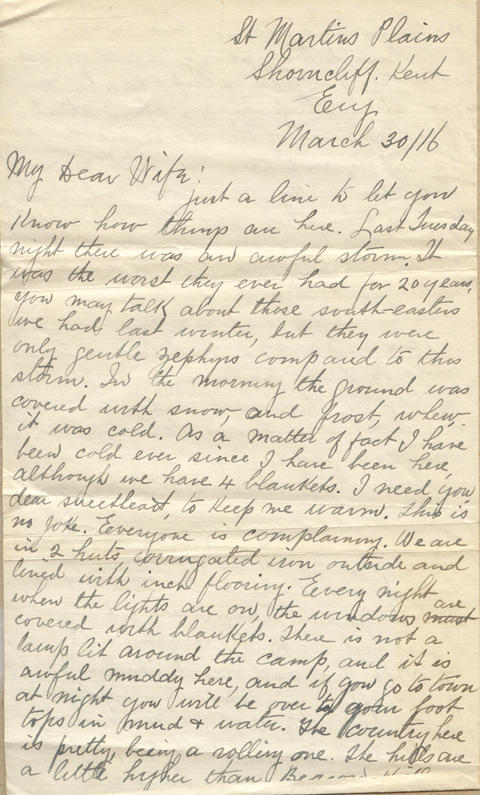 St Martins Plains
Shorncliff. Kent
Eng
March 30/16
My Dear Wife!
just a line to let you
know how things are here. Last Tuesday
night there was an awful storm. It
was the worst they ever had for 20 years,
you may talk about those south-easters
we had last winter, but they were
only gentle zephyrs compared to this
storm. In the morning the ground was
covered with snow, and frost, whew.
it was cold. As a matter of fact I have
been cold ever since I have been here,
although we have 4 blankets. I need you
dear sweetheart, to keep me warm. This is
no joke. Eeveryone is complaining. We are
in 2 huts, corrugated iron outside and
lined with inch flooring. Eevery night
when the lights are on, the windows must are
covered with blankets. There is not a
lamp lit around the camp, and it is
awful muddy here, and if you go to town
at night you will be over to your foot
tops in mud & water. The country here
is pretty, being a rolling one. The hills are
a little higher than